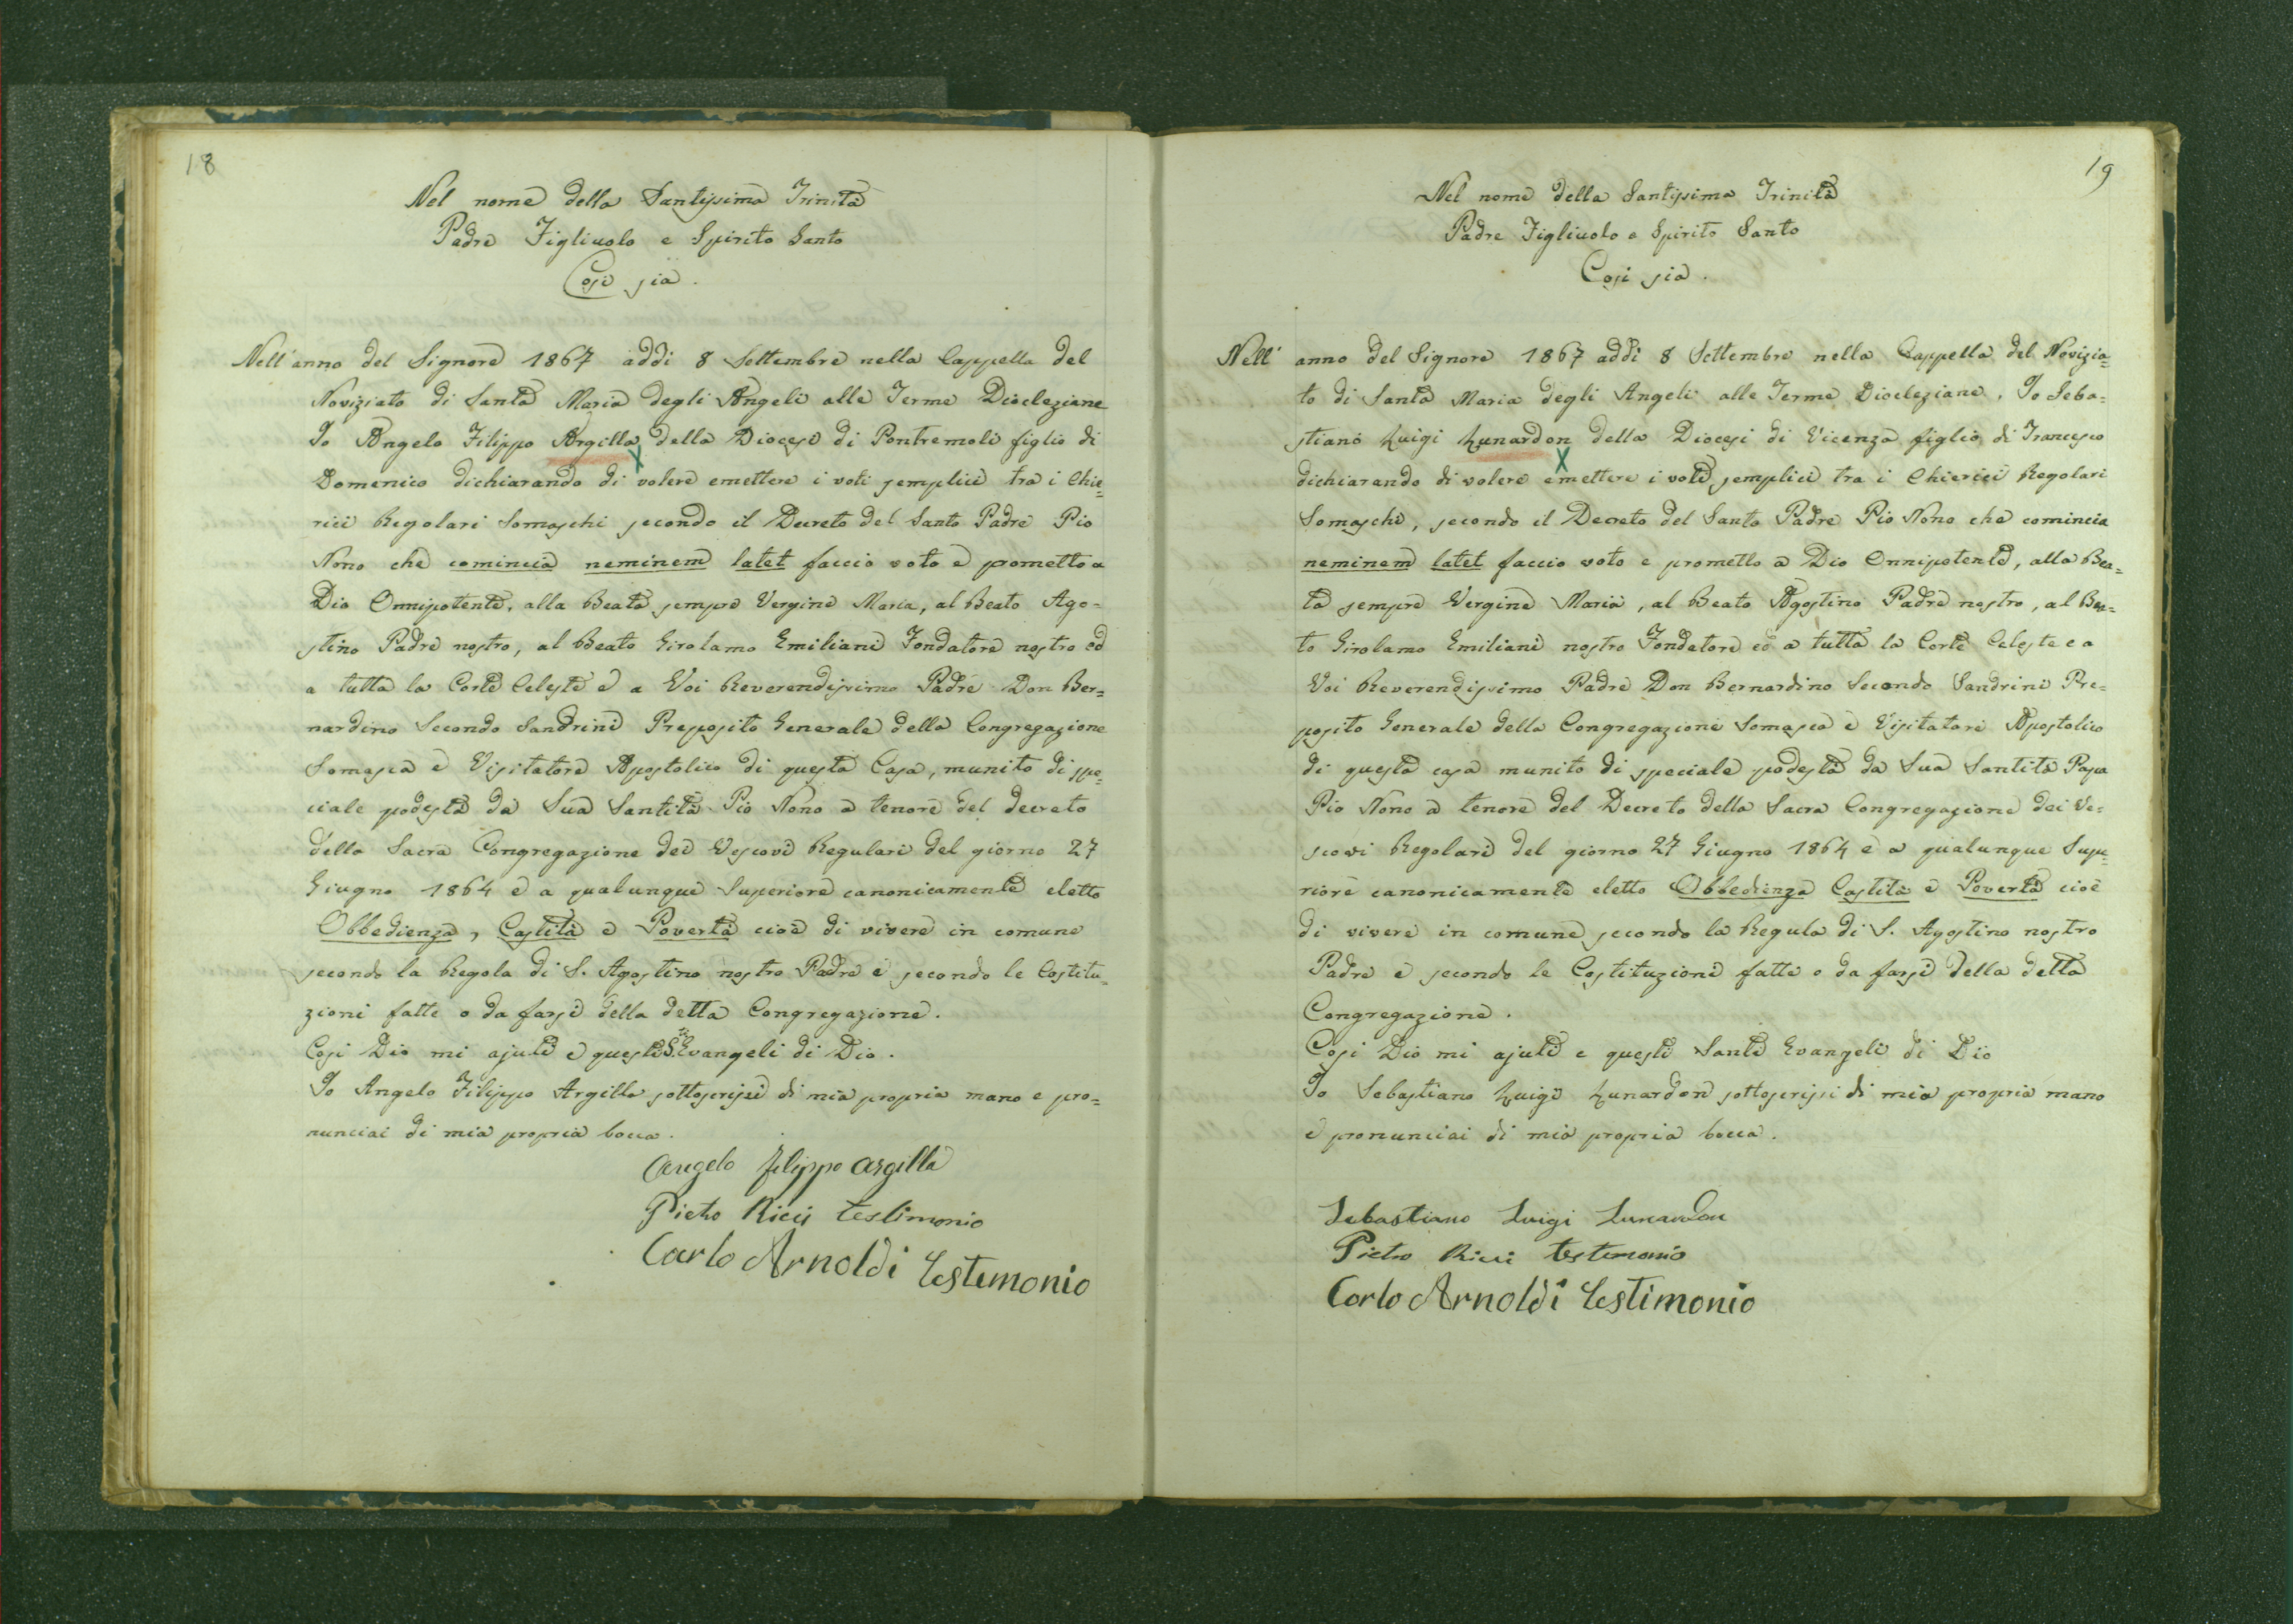 18
Nel nome della Santissima Trinità
Padre Figliuolo e Spirito Santo
Così sia.
Nell'anno del Signore 1867 addì 8 Settembre nella Cappella del
Noviziato di Santa Maria degli Angeli alle Terme Diocleziane
Io Angelo Filippo Argilla della Diocesi di Pontremoli figlio di
Domenico dichiarando di volere emettere i voti semplici tra i Chie=
rici Regolari Somaschi secondo il Decreto del Santo Padre Pio
Nono che comincia neminem latet faccio voto e prometto a
Dio Onnipotente, alla Beata sempre Vergine Maria, al Beato Ago=
stino Padre nostro, al Beato Girolamo Emiliani Fondatore nostro ed
a tutta la Corte Celeste e a Voi Reverendissimo Padre Don Ber=
nardino Secondo Sandrini Preposito Generale della Congregazione
Somasca e Visitatore Apostolico di questa Casa, munito di spe=
ciale podestà da Sua Santità Pio Nono a tenore del decreto
della Sacra Congregazione dei Vescovi Regulari del giorno 27
Giugno 1864 e a qualunque Superiore canonicamente eletto
Obbedienza, Castità e Povertà cioè di vivere in comune
secondo la Regola di S. Agostino nostro Padre e secondo le Costitu=
zioni fatte o da farsi della detta Congregazione.
Così Dio mi ajuti e questi S.ti Evangeli di Dio.
Io Angelo Filippo Argilla sottoscrissi di mia propria mano e pro=
nunciai di mia propria bocca.
Angelo Filippo Argilla
Pietro Ricci testimonio
Carlo Arnoldi testimonio
19
Nel nome della Santissima Trinità
Padre Figliuolo e Spirito Santo
Così sia.
Nell' anno del Signore 1867 addì 8 Settembre nella Cappella del Novizia=
to di Santa Maria degli Angeli alle Terme Diocleziane, Io Seba=
stiano Luigi Lunardon della Diocesi di Vicenza figlio di Francesco
dichiarando di volere emettere i voti semplici tra i Chierici Regolari
Somaschi, secondo il Decreto del Santo Padre Pio Nono che comincia
neminem latet faccio voto e prometto a Dio Onnipotente, alla Bea=
ta sempre Vergine Maria, al Beato Agostino Padre nostro, al Bea=
to Girolamo Emiliani nostro Fondatore ed a tutta la Corte Celeste e a
Voi Reverendissimo Padre Don Bernardino Secondo Sandrini Pre=
posito Generale della Congregazione Somasca e Visitatore Apostolico
di questa casa munito di speciale podestà da Sua Santità Papa
Pio Nono a tenore del Decreto della Sacra Congregazione dei Ve=
scovi Regolari del giorno 27 Giugno 1864 e a qualunque Supe=
riore canonicamente eletto Obbedienza Castità e Povertà cioè
di vivere in comune secondo la Regula di S. Agostino nostro
Padre e secondo le Costituzioni fatte o da farsi della detta
Congregazione.
Così Dio mi ajuti e questi Santi Evangeli di Dio
Io Sebastiano Luigi Lunardon sottoscrissi di mia propria mano
e pronunciai di mia propria bocca.
Sebastiano Luigi Lunardon
Pietro Ricci testimonio
Carlo Arnoldi testimonio